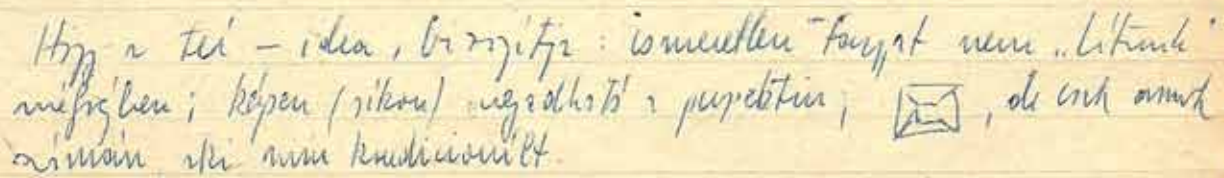 Hogy a tér – idea, bizonyítja: ismeretlen tárgyat nem „látunk”
mélységben; képen (síkon) megadható a perspektíva, , de csak annak
számára, aki nem kondicionált.